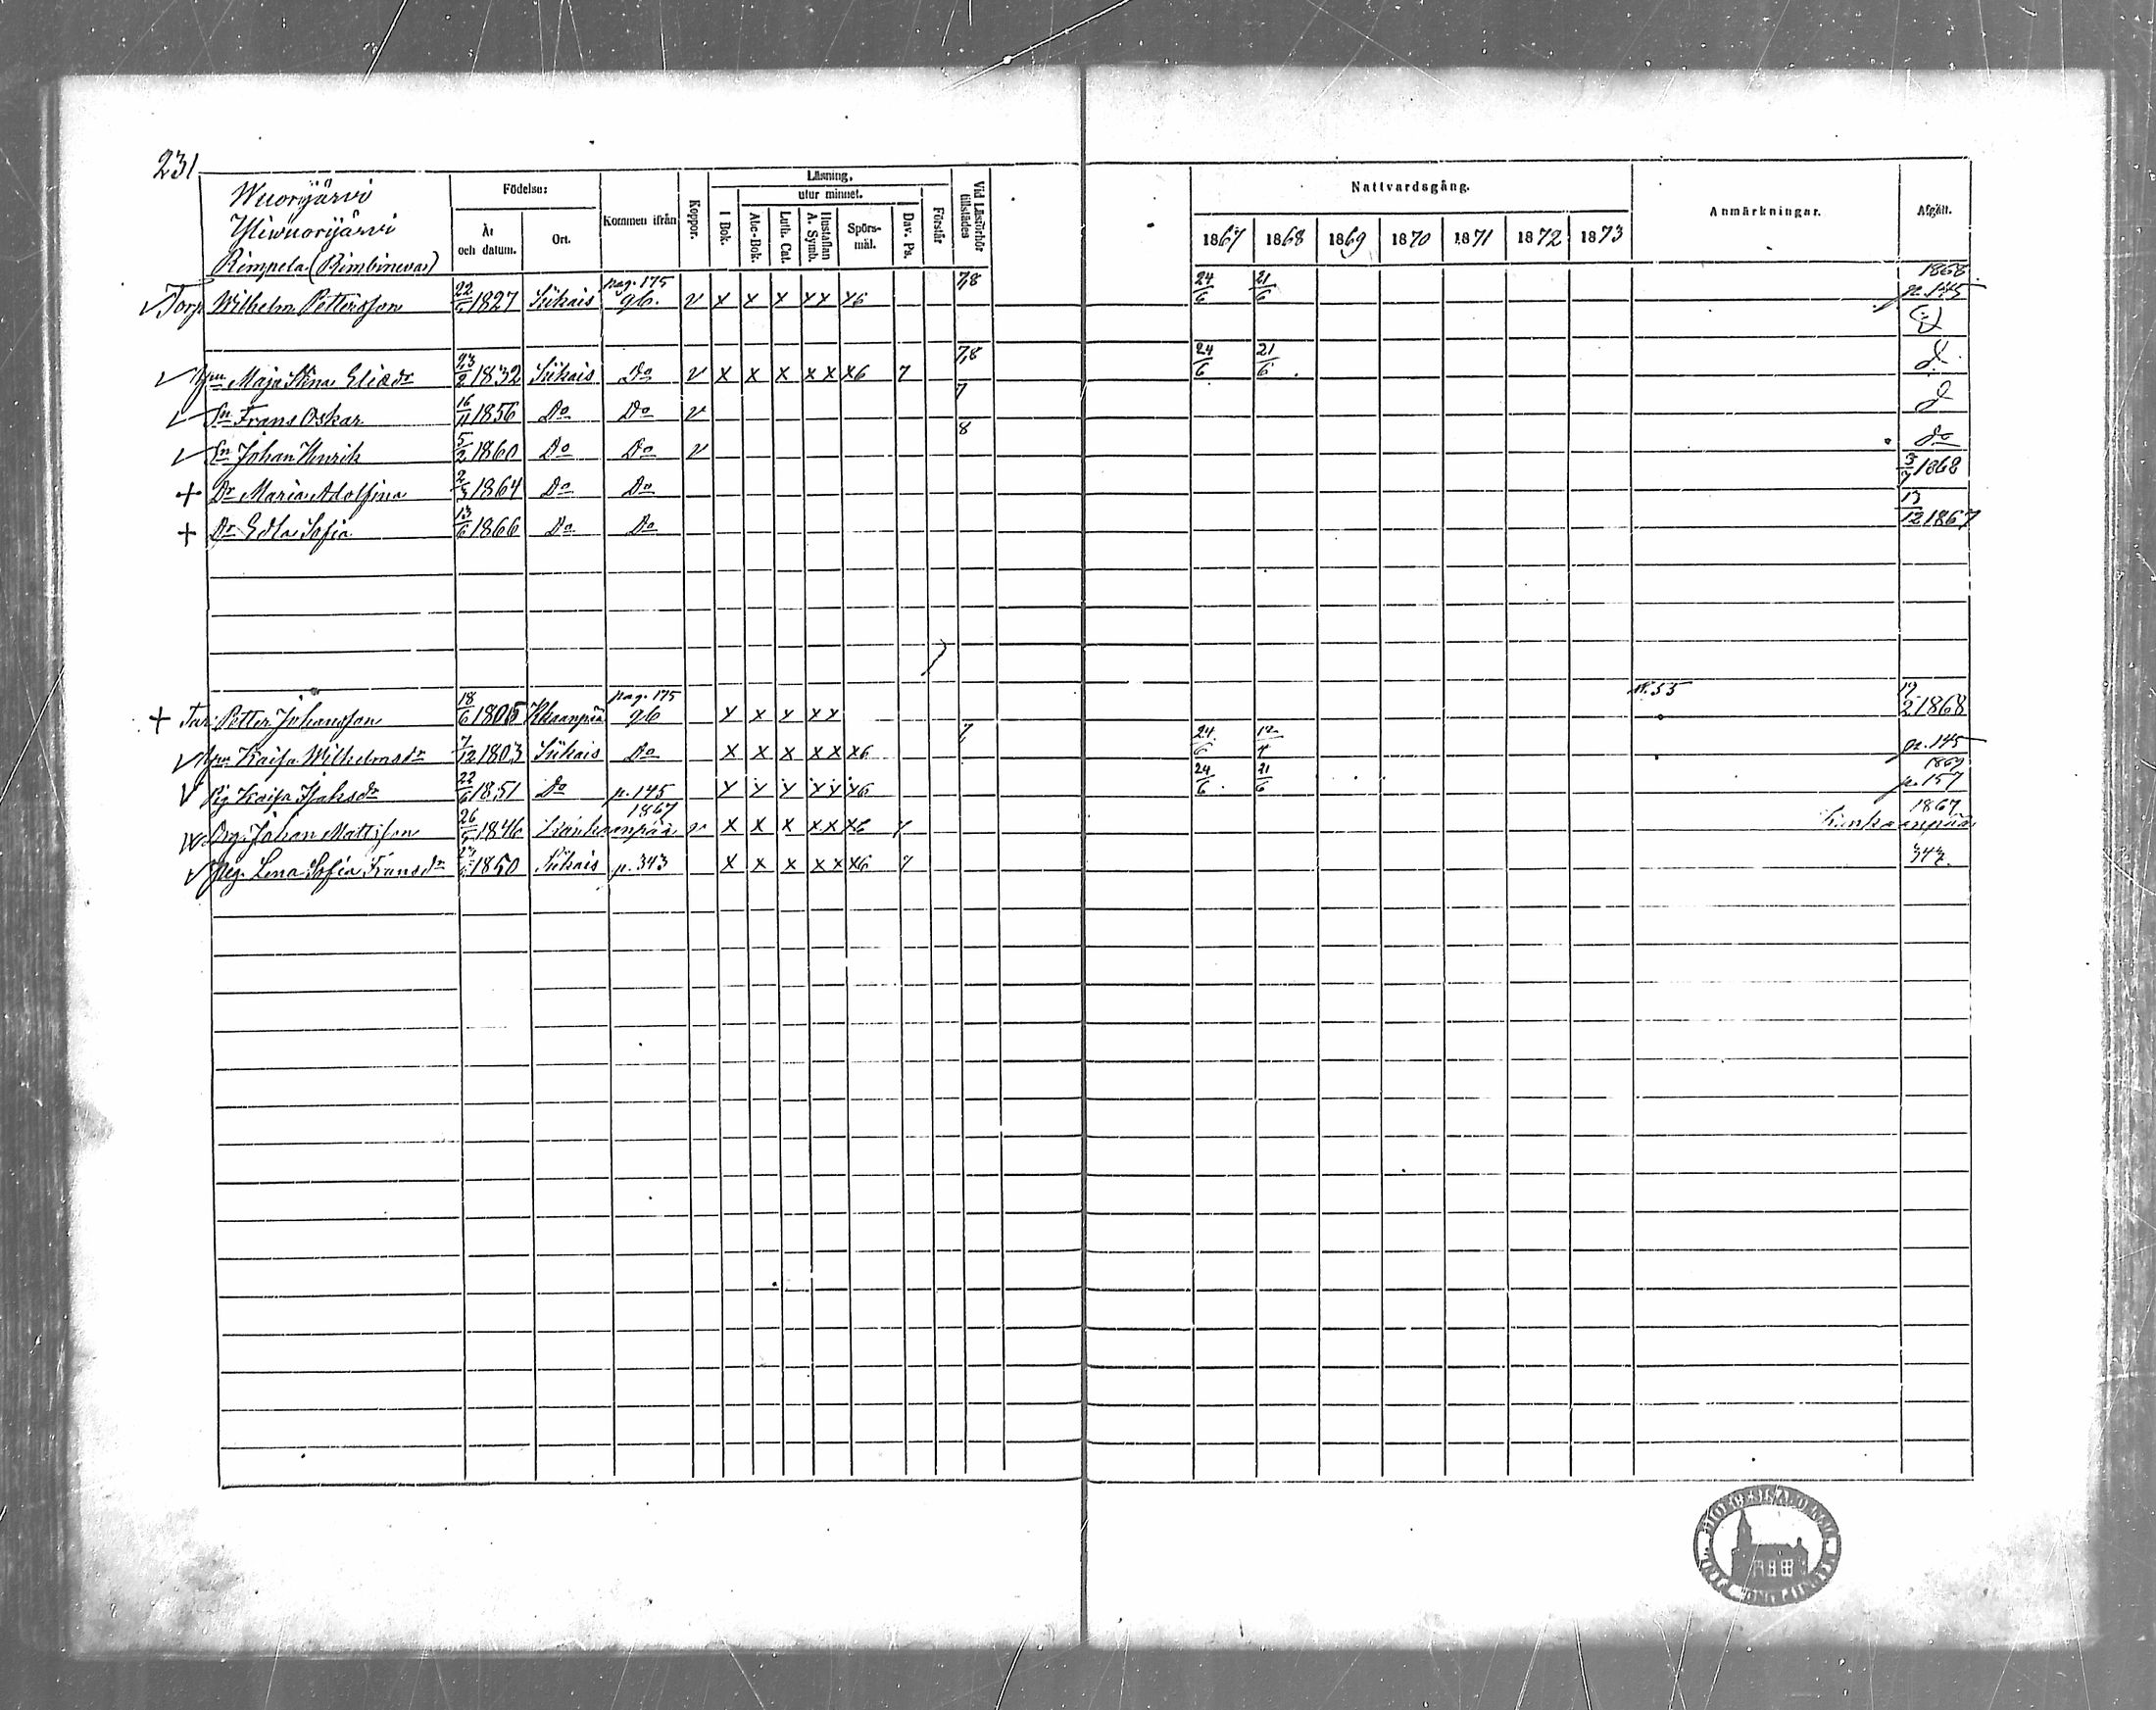 231
Wuorijärvi
Yliwuorijärvi
Rimpelä (Rimbinevas)
Födelse:
År och datum.
Ort.
Kommen ifrån
Koppor.
Läsning.
I Bok.
utur minnet.
Abc-Bok.
Luth. Cat.
Hustaflan A. Symb.
Spörs-mål.
Dav. Ps.
Förstår
Vid Läsförhör tillstädes
Nattvardsgång.
1867 1868 1869 1870 1871 1872 1873
Anmärkningar.
Afgått.
pag. 175 7,8 24/6 21/6 1868
Torp. Wilhelm Pettersson 22 1827 Siikais 96. v x x x x x x6 p. 145
7,8 24/6 21/6
Hm Maja Stina Eliædr 23/2 1832 Siikais Do v x x x x x x6 7
7
Sn Frans Oskar 16/11 1856 Do Do v
8
Sn Johan Henrik 5/2 1860 Do Do v do
Dr Maria Adolfina 2/3 1864 Do Do 3/7 1868
Dr Edla Sofia 13/6 1866 Do Do 13/12 1867
pag. 175 N. 55
Far Petter Johansson 18/6 1805 Kkaanpää 96 x x x x x 19/2 1868
Hm Kaisa Wilhelmsdr 7/12 1803 Siikais Do x x x x x x6 7 24/6 12/4 p. 145
1869
Pig Kaisa Isaksdr 22/6 1851 Do p. 145 x x x x x x6 24/6 21/6 p. 157
1867 1867
Drg. Johan Mattsson 26 1846 Kankaanpää v x x x x x x6 7 Kankaanpää
Pig. Lena Sofia Fransdr 1850 Siikais p. 343 x x x x x x6 7 343.